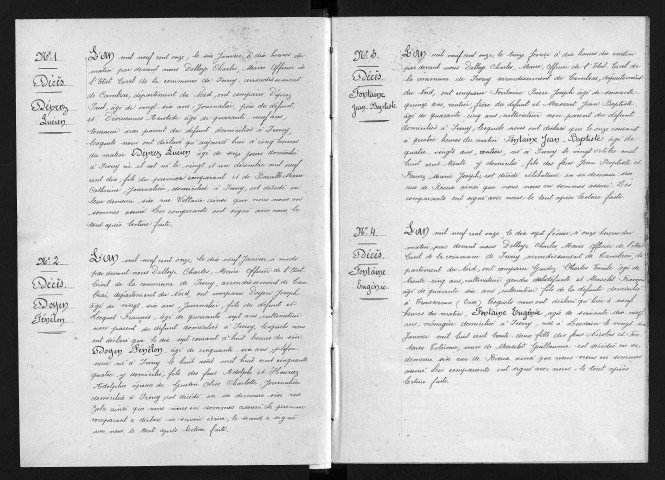 N° 1
Décès
Déprez
Lucien
L'an mil neuf cent onze, le six Janvier, à dix heures du
matin par devant nous Delloye Charles, Maire Officier de
l'Etat Civil de la commune de Iwuy, arrondissement
de Cambrai, département du Nord, ont comparu Déprez
Paul, âgé de vingt six ans, Journalier, père du défunt,
et Aristide âgé de quarante neuf ans,
non parent du défunt domiciliés à Iwuy,
lesquels nous ont déclaré qu'aujourd'hui à cinq heures
du matin Déprez Lucien âgé de deux jours domicilié
à Iwuy né il est né le vingt et un décembre mil neuf
cent dix, fils du premier comparant et de Marie
Catherine, Journalière, domiciliée à Iwuy, est décédé en
leur demeure sise rue Voltaire ainsi que nous nous en
sommes assuré. Les comparants ont signé avec nous le
tout après lecture faite.
N° 2
Décès
Doyen
Fénélon
L'an mil neuf cent onze, le dix neuf Janvier, à midi
par devant nous Delloye Charles, Maire Officier de l'Etat
Civil de la commune de Iwuy, arrondissement de Cam-
brai, département du Nord, ont comparu Doyen Joseph
âgé de vingt six ans, Journalier, fils du défunt et
François, âgé de quarante sept ans,
non parent du défunt domiciliés à Iwuy lesquels nous
ont déclaré que le dix sept courant à huit heures du soir
Doyen Fénélon âgé de cinquante six ans
né à Iwuy le huit août mil huit cent cinquante
quatre y domicilié, fils des feus Adolphe et
Adolphine époux de Charlotte, Journalière
domiciliée à Iwuy est décédé en sa demeure sise rue
Zola ainsi que nous nous en sommes assuré le premier
comparant a déclaré ne savoir écrire, le second a signé
avec nous le tout après lecture faite.
N° 3
Décès
Fontaine
Jean Baptiste
L'an mil neuf cent onze, le treize Février à dix heures du matin
par devant nous Delloye Charles, Maire, Officier de l'Etat Civil de
la commune de Iwuy arrondissement de Cambrai, département
du Nord, ont comparu Fontaine Pierre Joseph âgé de soixante
quinze ans, rentier, frère du défunt et Jean Baptiste,
âgé de quarante cinq ans, cultivateur non parent du défunt
domiciliés à Iwuy, lesquels nous ont déclaré que le onze courant
à quatre heures du matin Fontaine Jean Baptiste âgé de
quatre vingts ans, rentier né à Iwuy le vingt octobre mil
huit cent trente y domicilié, fils des feus Jean Baptiste et
Marie Joseph, est décédé célibataire en sa demeure sise
rue de ainsi que nous nous en sommes assuré. Les
comparants ont signé avec nous le tout après lecture faite.
N° 4
Décès
Fontaine
Eugénie
L'an mil neuf cent onze, le dix sept Février, à onze heures du
matin, par devant nous Delloye Charles, Maire Officier de l'Etat
Civil de la commune de Iwuy arrondissement de Cambrai, dé-
partement du Nord, ont comparu Charles âgé de
trente cinq ans, cultivateur gendre et François
âgé de quarante six ans, cultivateur, fils de la défunte domiciliés
à lesquels nous ont déclaré que hier à neuf
heures du matin, Fontaine Eugénie âgée de soixante dix neuf
ans, ménagère domiciliée à Iwuy, née à le vingt six
Janvier mil huit cent trente deux fille des feus Nicolas et
veuve de Guillaume est décédée en sa
demeure sise rue de ainsi que nous nous en sommes
assuré les comparants ont signé avec nous, le tout après
lecture faite.